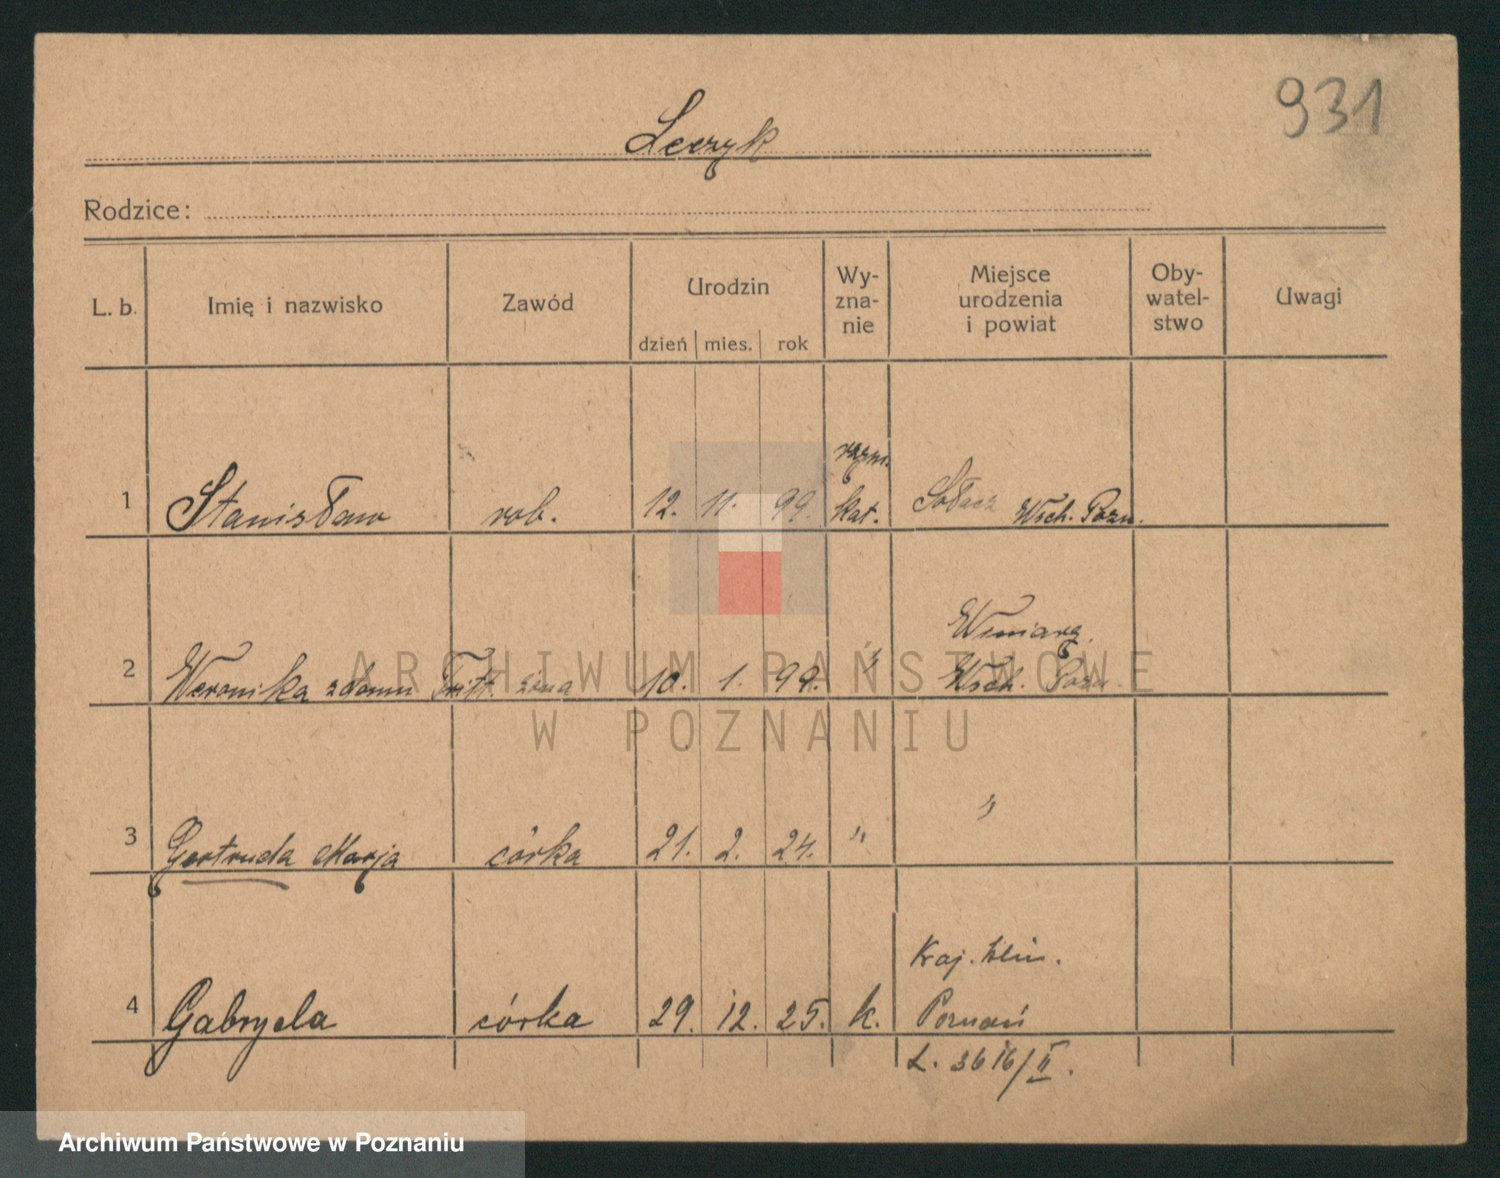 931
Leczyk
Rodzice:
L. b. Imię i nazwisko Zawód Urodzin dzień mies. rok Wy-zna-nie Miejsce urodzenia i powiat Oby-watel-stwo Uwagi
rzym.
1 Stanisław rob. 12. 11. 99. kat. Sołacz Wsch. Pozn.
Winiary.
2 Weronika z domu Tritt. żona 10. 1. 99. " Wsch. Pozn.
3 Gertruda Marja córka 21. 2. 24. " "
Kraj. klin.
4 Gabryela córka 29. 12. 25. k. Poznań
L. 3616/II.
ARCHIWUM PAŃSTWOWE
W POZNANIU
Archiwum Państwowe w Poznaniu